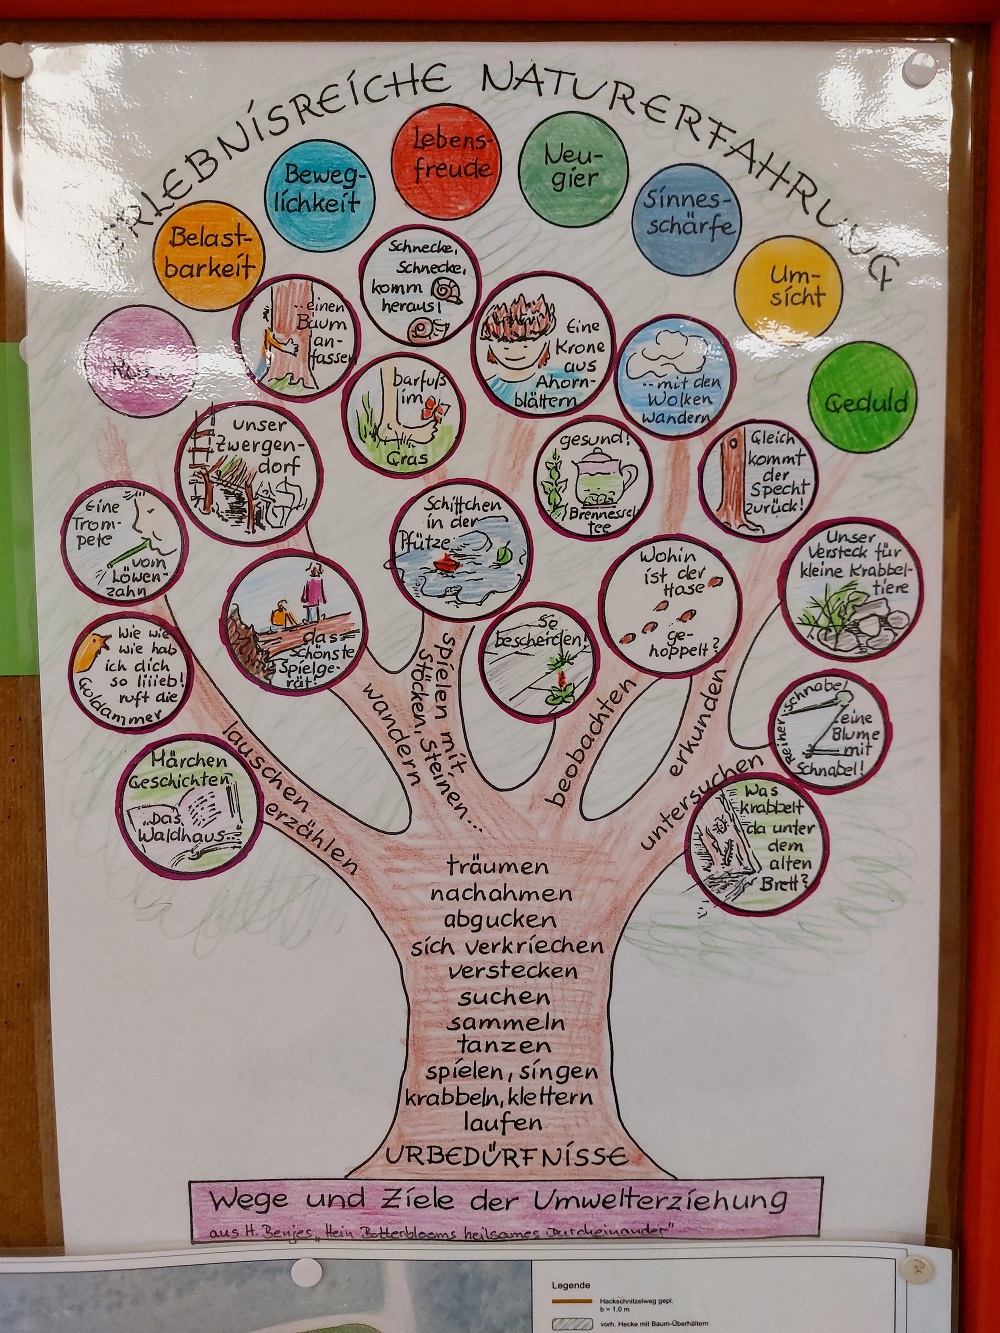 ERLEBNISREICHE NATURERFAHRUNG
Lebens-
freude
Neu-
gier
Beweg-
lichkeit
Sinnes-
schärfe
Belast-
barkeit
Um-
sicht
Geduld
Schnecke,
Schnecke,
komm
heraus!
...einen
Baum
an-
fassen
Eine
Krone
aus
Ahorn-
blättern
...mit den
Wolken
wandern
barfuß
im
Gras
unser
Zwergen-
dorf
gesund!
Brennessel
tee
Gleich
kommt
der
Specht
zurück!
Eine
Trom-
pete
vom
Löwen-
zahn
Schiffchen
in der
Pfütze
Wohin
ist der
Hase
ge-
hoppelt?
Unser
Versteck für
kleine Krabbel-
tiere
das
schönste
Spielge-
rät!
So
bescheiden!
Wie wie
wie hab
ich dich
so liiieb!
ruft die
Goldammer
Reiher-schnabel
eine
Blume
mit
Schnabel!
Märchen
Geschichten
"Das
Waldhaus..."
Was
krabbelt
da unter
dem
alten
Brett?
lauschen
erzählen
wandern
spielen mit
Stöcken, Steinen...
beobachten
erkunden
untersuchen
träumen
nachahmen
abgucken
sich verkriechen
verstecken
suchen
sammeln
tanzen
spielen, singen
krabbeln, klettern
laufen
URBEDÜRFNISSE
Wege und Ziele der Umwelterziehung
aus H. Benjes „Hein Botterblooms heilsames Durcheinander"
Legende
Hackschnitzelweg gepl.
b = 1,0 m
vorh. Hecke mit Baum-Überhältern